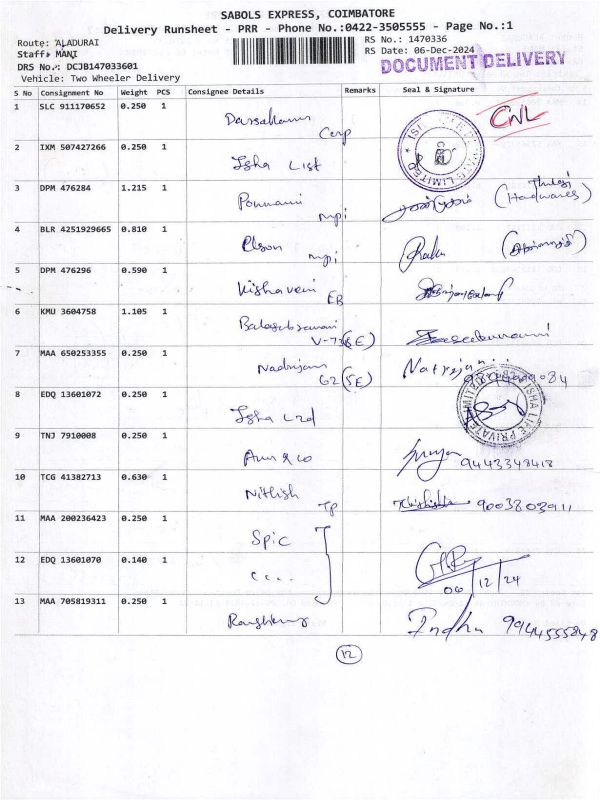 SABOLS EXPRESS, COIMBATORE
Delivery Runsheet - PRR - Phone No.:0422-3505555 - Page No.:1
Route: ALADURAI
Staff: MANI
DRS No.: DCJB147033601
Vehicle: Two Wheeler Delivery
RS No.: 1470336
RS Date: 06-Dec-2024
DOCUMENT DELIVERY
S No Consignment No Weight PCS Consignee Details Remarks Seal & Signature
1 SLC 911170652 0.250 1 Corp CNL
2 IXM 507427266 0.250 1 Isha List
3 DPM 476284 1.215 1 mpi (Hardwares)
4 BLR 4251929665 0.810 1 Elson mpi
5 DPM 476296 0.590 1 Kishaveni EB
6 KMU 3604758 1.105 1 Balasubramani
7 MAA 650253355 0.250 1 Nadrajan 62 (SE)
8 EDQ 13601072 0.250 1 Isha Lrd
9 TNJ 7910008 0.250 1 Arun & co 9443348418
10 TCG 41382713 0.630 1 Nithish TP 9003803911
11 MAA 200236423 0.250 1 Spic
12 EDQ 13601070 0.140 1 06/12/24
13 MAA 705819311 0.250 1 Indhu 9944555848
12